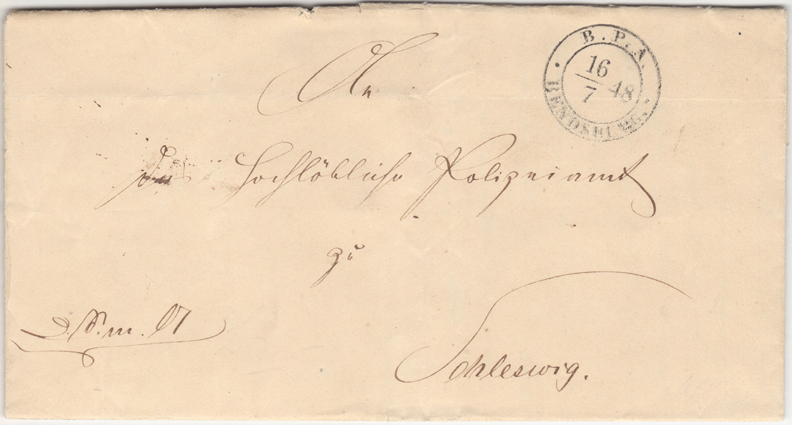 B. P. A.
16
7 48
RENDSBURG.
An
das Hochlöbliche Polizeiamt
zu
D. S. m. N
Schleswig.